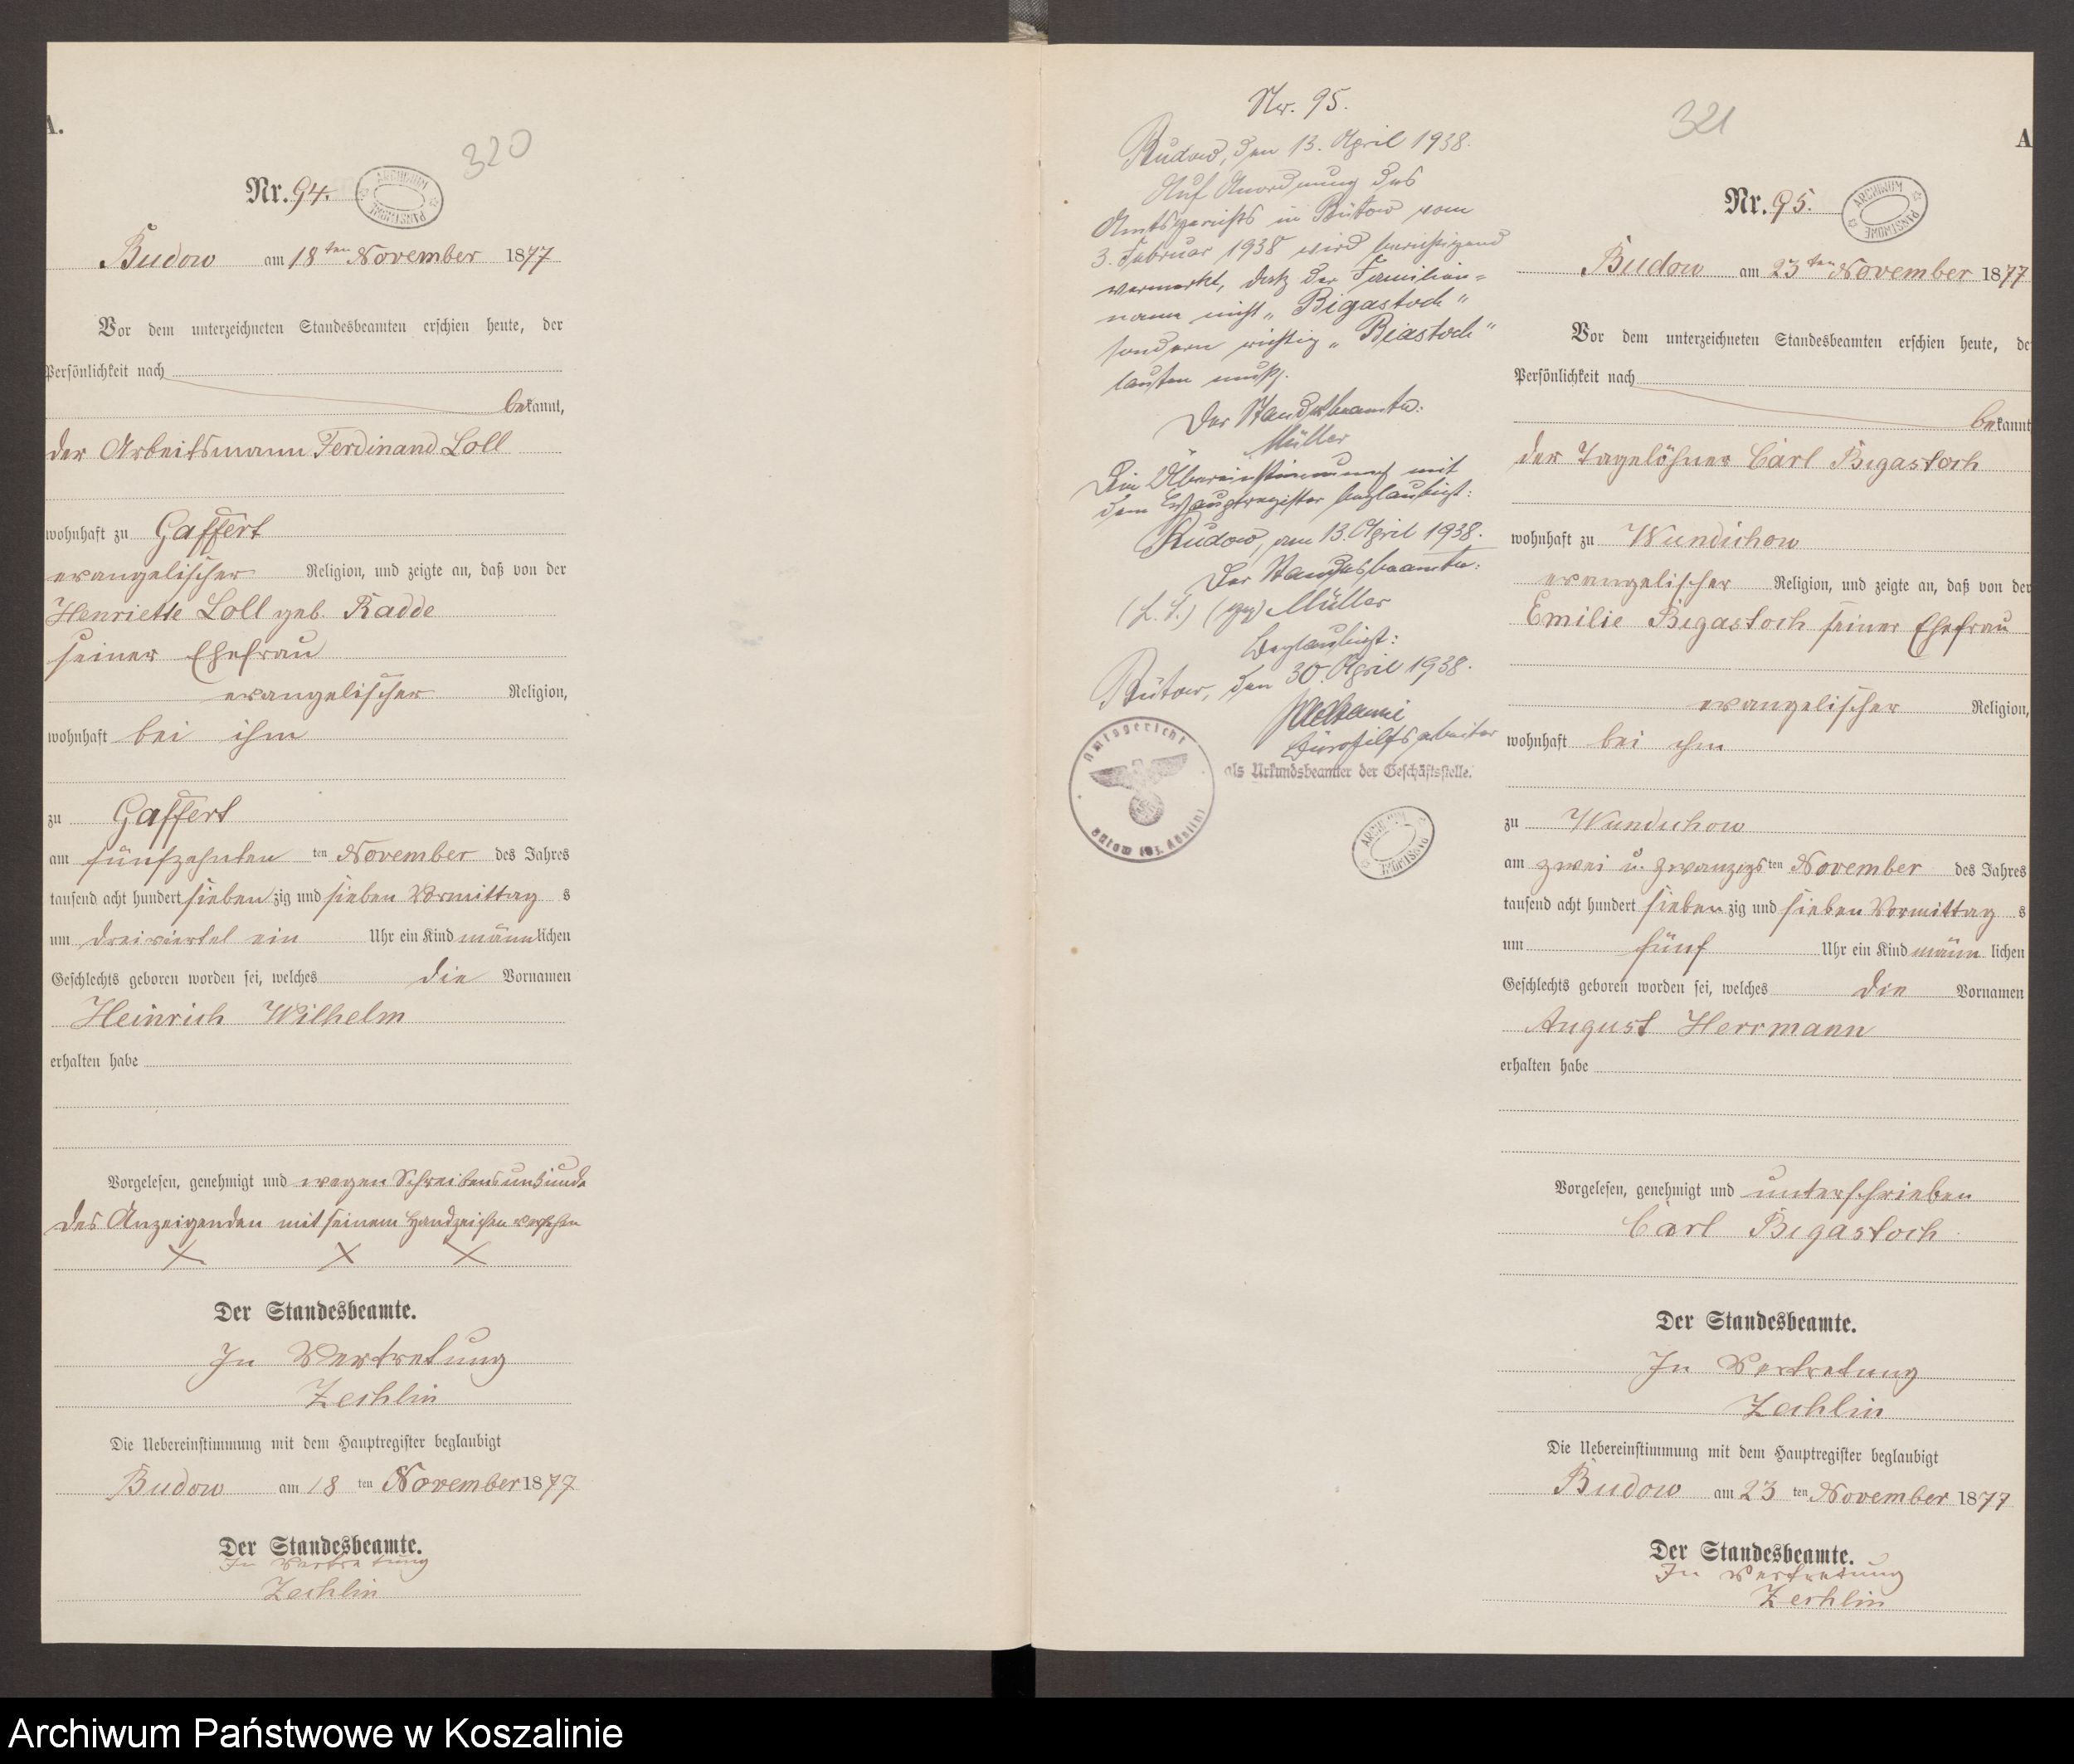 A.
320
Nr. 94.
ARCHIWUM PAŃSTWOWE
Budow am 18ten November 1877
Vor dem unterzeichneten Standesbeamten erschien heute, der
Persönlichkeit nach
bekannt,
der Arbeitsmann Ferdinand Loll
wohnhaft zu Gaffert
evangelischer Religion, und zeigte an, daß von der
Henriette Loll geb. Radde
seiner Ehefrau
evangelischer Religion,
wohnhaft bei ihm
zu Gaffert
am fünfzehnten ten November des Jahres
tausend acht hundert siebenzig und sieben Vormittag s
um dreiviertel ein Uhr ein Kind männlichen
Geschlechts geboren worden sei, welches die Vornamen
Heinrich Wilhelm
erhalten habe
Vorgelesen, genehmigt und wegen Schreibensunkunde
des Anzeigenden mit seinem Handzeichen versehen
X X X
Der Standesbeamte.
In Vertretung
Zechlin
Die Uebereinstimmung mit dem Hauptregister beglaubigt
Budow am 18 ten November 1877
Der Standesbeamte.
In Vertretung
Zechlin
Nr. 95.
Budow, den 13. April 1938.
Auf Anordnung des
Amtsgerichts in Bütow vom
3. Februar 1938 wird berichtigend
vermerkt, daß der Familien=
name nicht „Bigastoch"
sondern richtig „Biastoch"
lauten muß.
Der Standesbeamte:
Müller
Die Übereinstimmung mit
dem Hauptregister beglaubigt:
Budow, am 13. April 1938.
Der Standesbeamte:
(L.S.) (gez) Müller
Beglaubigt:
Bütow, den 30. April 1938.
Bürohilfsarbeiter
als Urkundsbeamter der Geschäftsstelle.
Amtsgericht
Bütow (Bz. Köslin)
ARCHIWUM PAŃSTWOWE
321
A
Nr. 95.
ARCHIWUM PAŃSTWOWE
Budow am 23ten November 1877
Vor dem unterzeichneten Standesbeamten erschien heute, de
Persönlichkeit nach
bekannt
der Tagelöhner Carl Bigastoch
wohnhaft zu Wundichow
evangelischer Religion, und zeigte an, daß von der
Emilie Bigastoch seiner Ehefrau
evangelischer Religion,
wohnhaft bei ihm
zu Wundichow
am zwei u. zwanzigsten November des Jahres
tausend acht hundert siebenzig und sieben Vormittag s
um fünf Uhr ein Kind männlichen
Geschlechts geboren worden sei, welches die Vornamen
August Herrmann
erhalten habe
Vorgelesen, genehmigt und unterschrieben
Carl Bigastoch
Der Standesbeamte.
In Vertretung
Zechlin
Die Uebereinstimmung mit dem Hauptregister beglaubigt
Budow am 23 ten November 1877
Der Standesbeamte.
In Vertretung
Zechlin
Archiwum Państwowe w Koszalinie